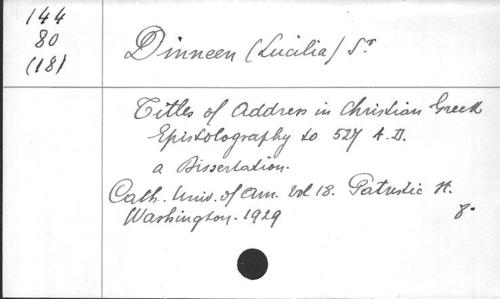 144
80
(18)
Dinneen (Lucilia) Sr
Titles of Address in Christian Greek
Epistolography to 527 A.D.
a Dissertation.
Cath. Univ. of Am. Vol 18. Patristic St.
Washington. 1929
8.